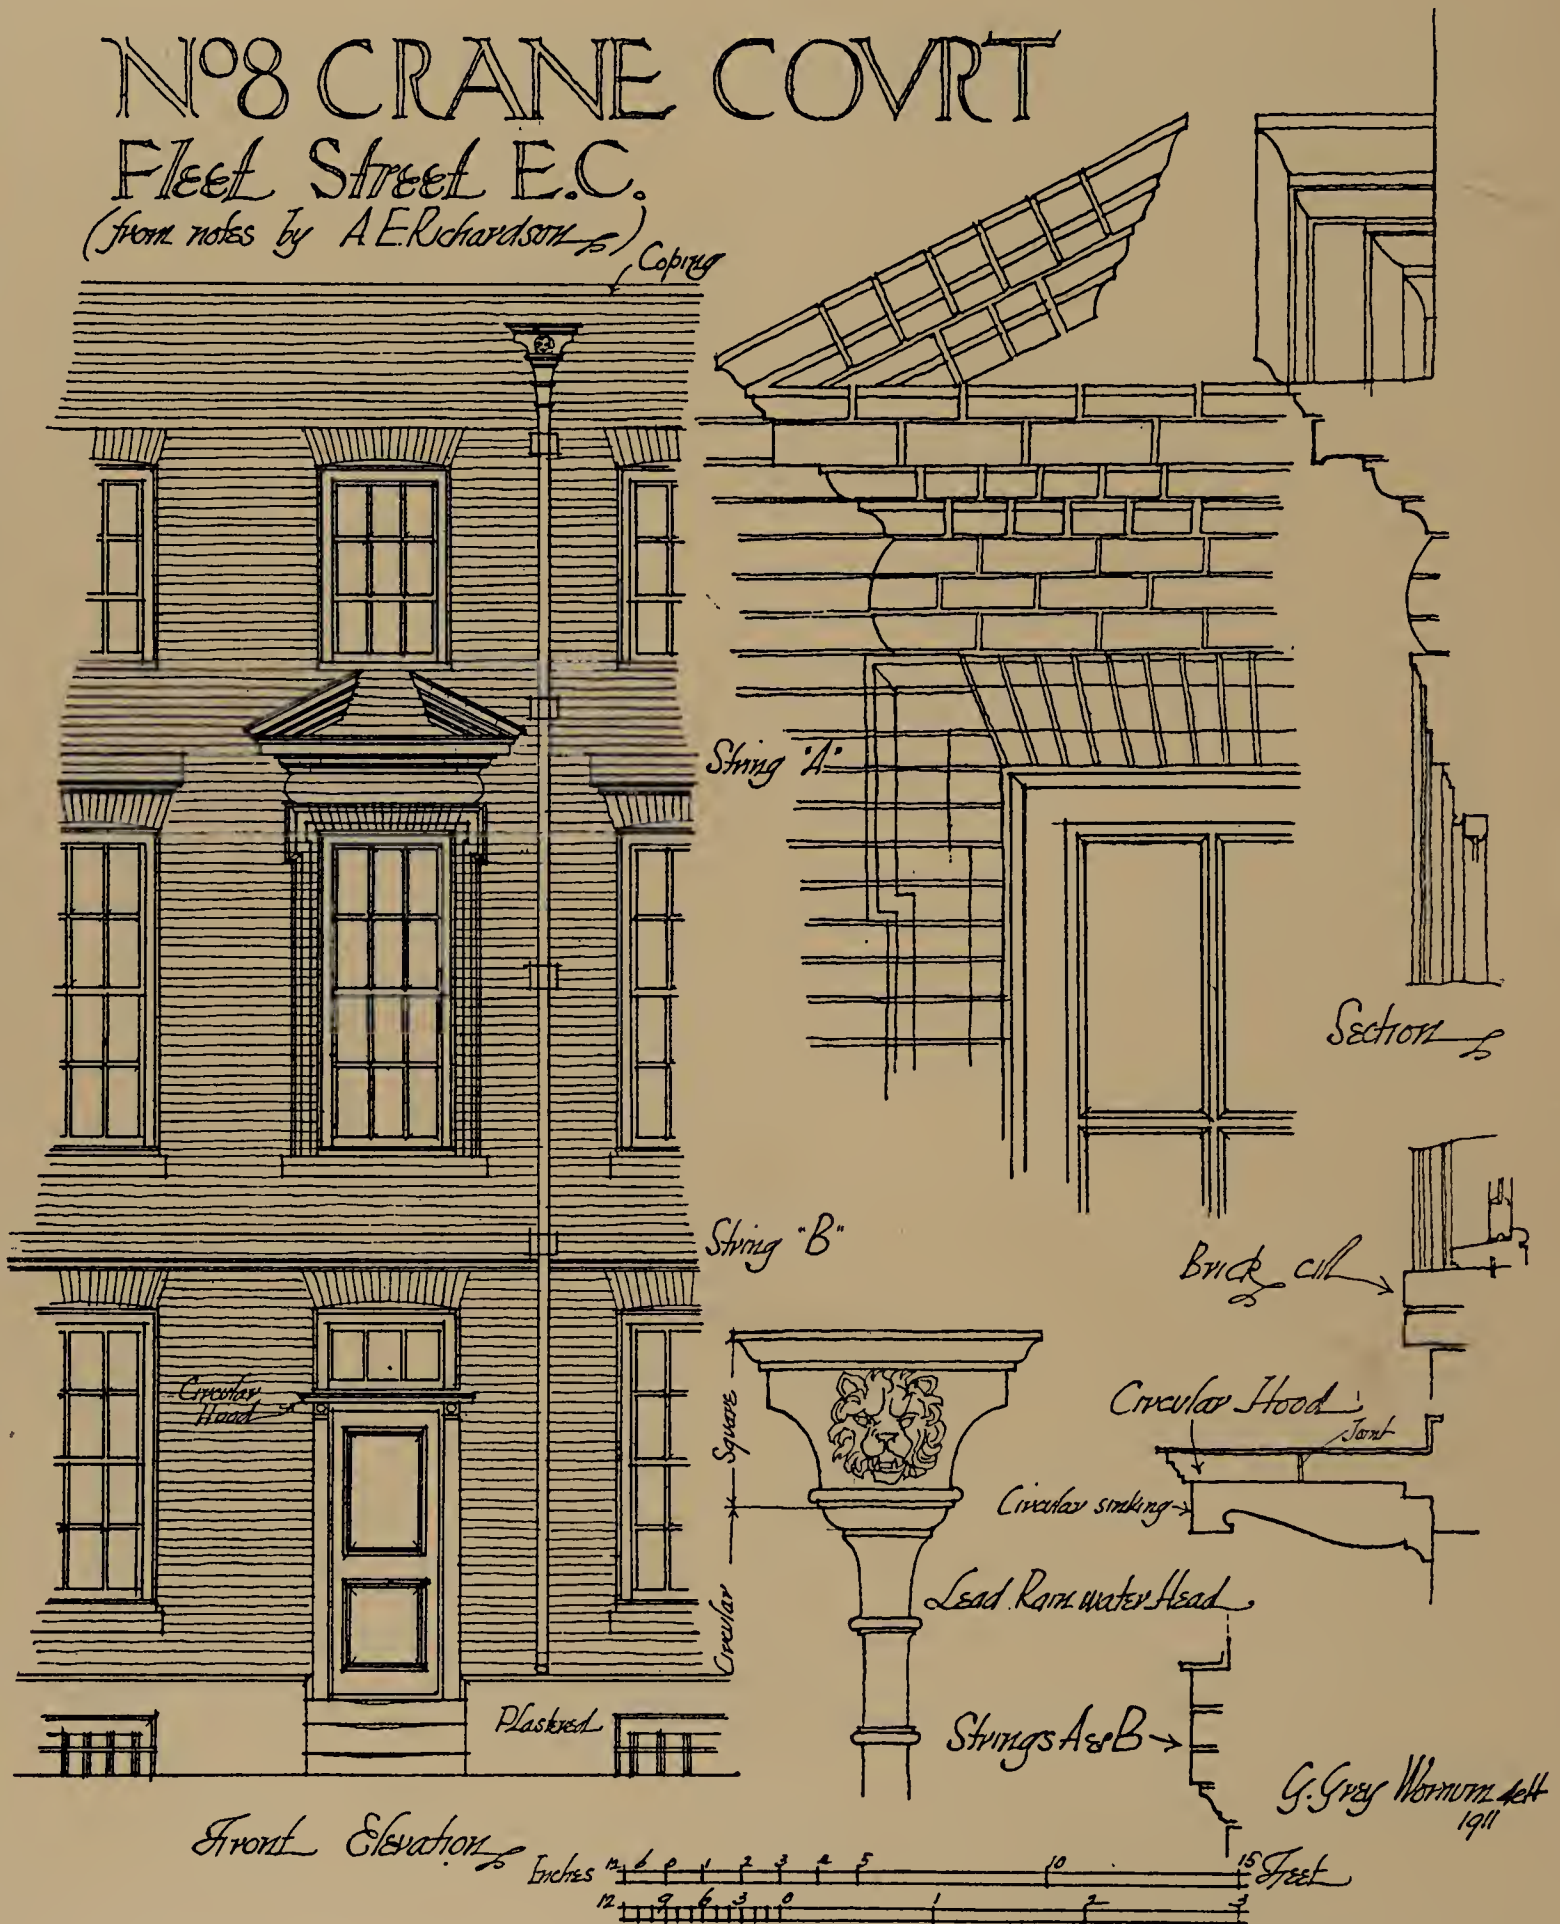 Nº8 CRANE COVRT
Fleet Street E.C.
(from notes by A.E.Richardson)
Coping
String "A"
Section
String "B"
Brick cill
Circular Hood
Circular Hood
Joint
Square
Circular sinking
Circular
Lead Rain water Head
Plastered
Strings A & B
G. Grey Wornum delt
1911
Front Elevation
Inches 12 6 0 1 2 3 4 5 10 15 Feet
12 9 6 3 0 1 2 3